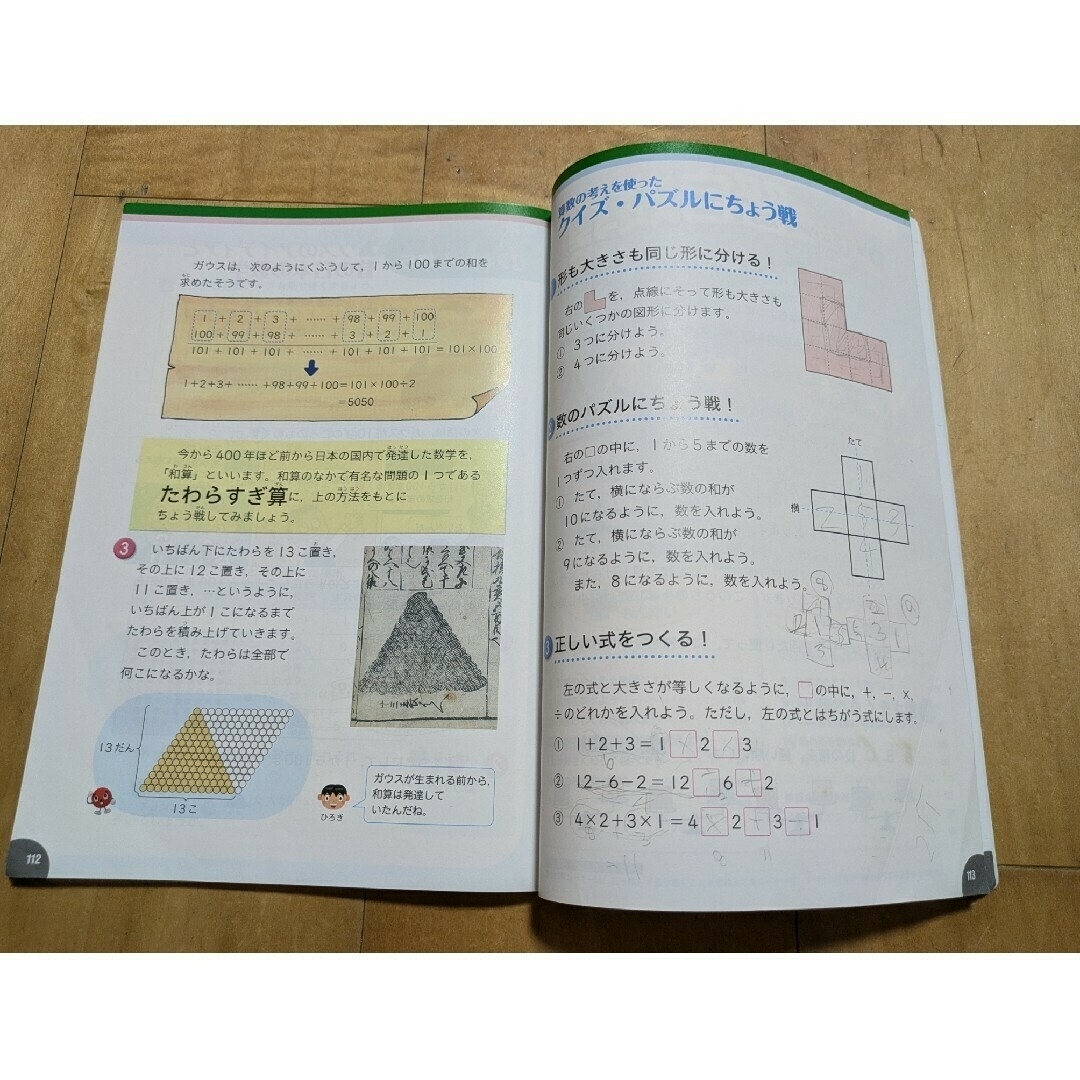 ガウスは、次のようにくふうして、1から100までの和を
求めたそうです。
1 + 2 + 3 + …… + 98 + 99 + 100
100 + 99 + 98 + …… + 3 + 2 + 1
101 + 101 + 101 + …… + 101 + 101 + 101 = 101×100
1+2+3+ …… +98+99+100=101×100÷2
=5050
今から400年ほど前から日本の国内で発達した数学を、
「和算」といいます。和算のなかで有名な問題の1つである
たわらすぎ算に、上の方法をもとに
ちょう戦してみましょう。
3 いちばん下にたわらを13こ置き、
その上に12こ置き、その上に
11こ置き、…というように、
いちばん上が1こになるまで
たわらを積み上げていきます。
このとき、たわらは全部で
何こになるかな。
13だん
13こ
ガウスが生まれる前から、
和算は発達して
いたんだね。
ひろき
112
算数の考えを使った
クイズ・パズルにちょう戦
形も大きさも同じ形に分ける!
右の を、点線にそって形も大きさも
同じいくつかの図形に分けます。
① 3つに分けよう。
② 4つに分けよう。
数のパズルにちょう戦!
右の□の中に、1から5までの数を
1つずつ入れます。
① たて、横にならぶ数の和が
10になるように、数を入れよう。
② たて、横にならぶ数の和が
9になるように、数を入れよう。
また、8になるように、数を入れよう。
たて
1
横 2 5 3
4
8
9
3 正しい式をつくる!
左の式と大きさが等しくなるように、□の中に、+、-、×、
÷のどれかを入れよう。ただし、左の式とはちがう式にします。
① 1+2+3=1×2×3
② 12-6-2=12÷6+2
③ 4×2+3×1=4×2+3÷1
113